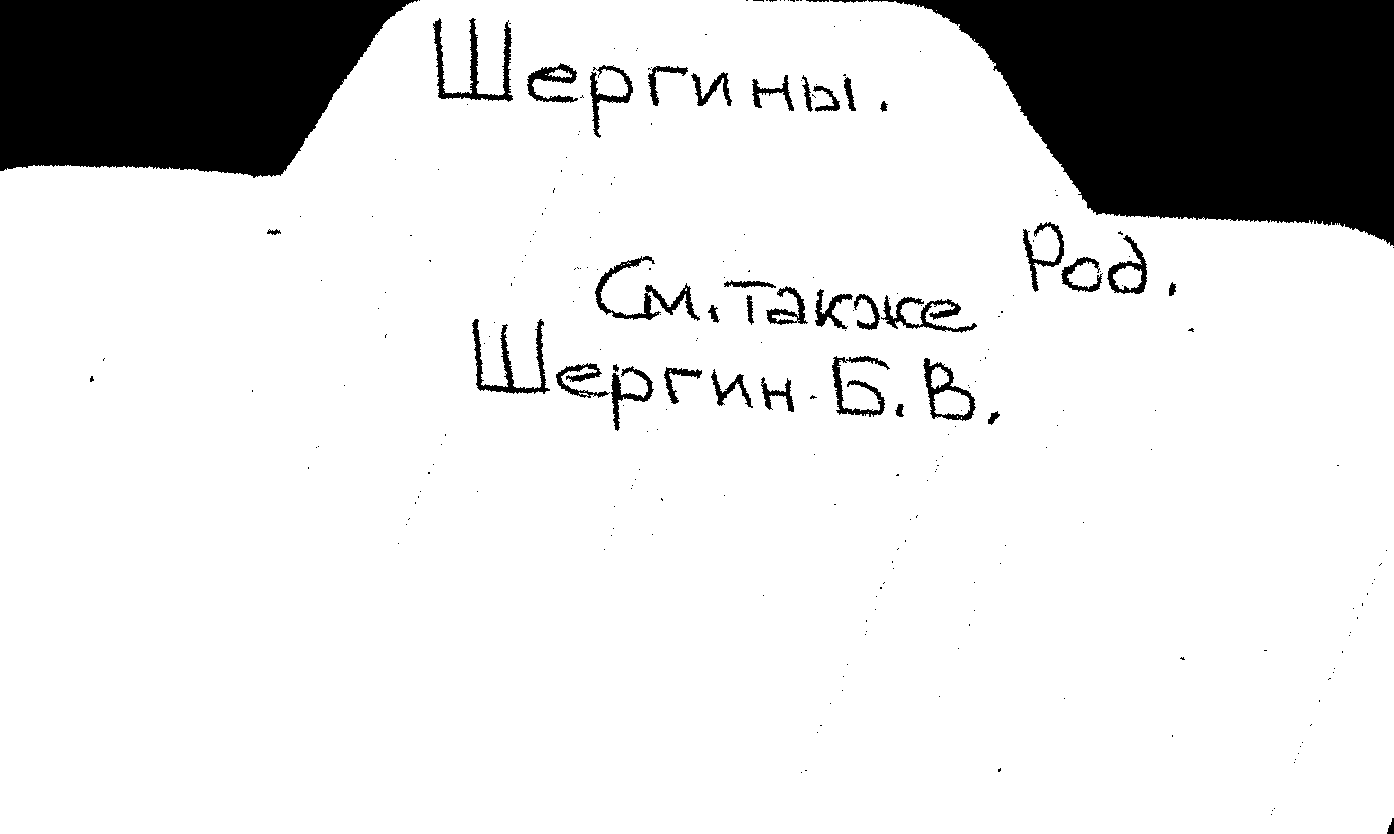 Шергины.
Род.
См. также
Шергин Б. В.